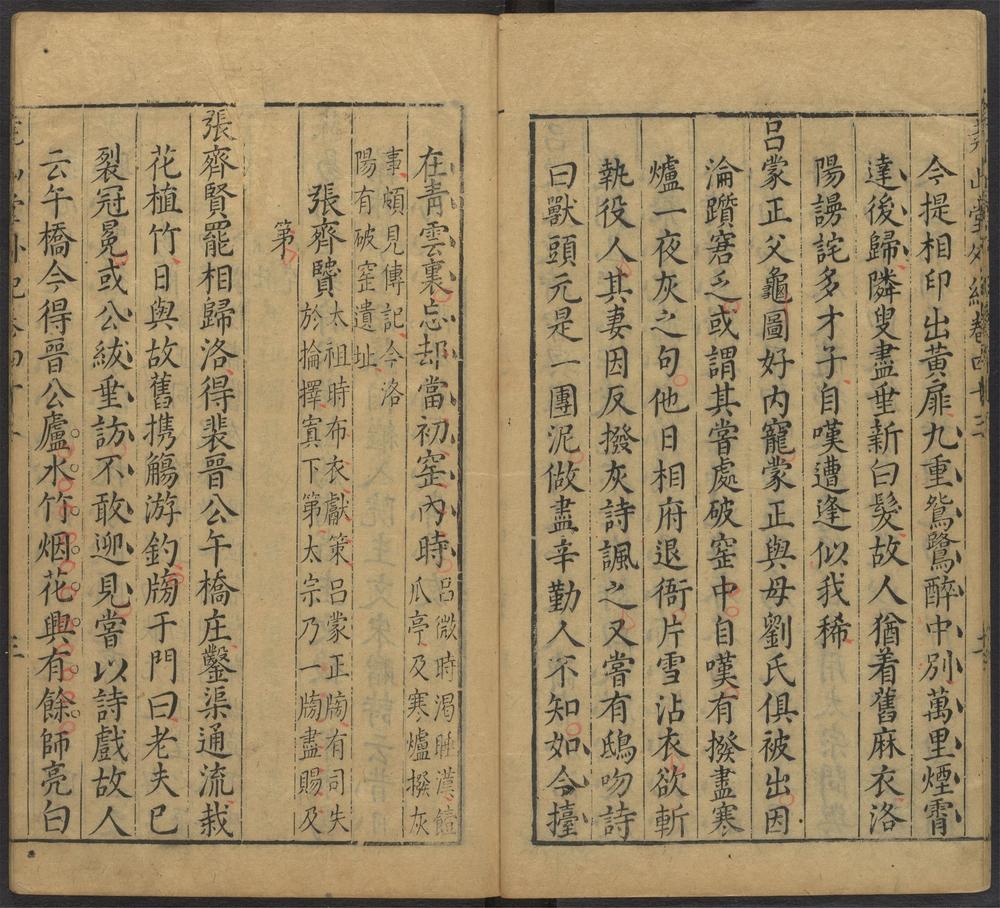 今提相印出黄扉九重鴛鷺醉中別萬里煙霄
達後歸隣叟盡垂新白髮故人猶着舊麻衣洛
陽謾詫多才子自嘆遭逢似我稀
呂蒙正父龜圖好内寵蒙正與母劉氏俱被出因
淪躓窘乏或謂其嘗處破窑中自嘆有撥盡寒
爐一夜灰之句他日相府退衙片雪沾衣欲斬
執役人其妻因反撥灰詩諷之又嘗有鴟吻詩
曰獸頭元是一團泥做盡辛勤人不知如今擡
在青雲裏忘却當初窑内時呂微時渴睡漢饐
瓜亭及寒爐撥灰
事頗見傳記今洛
陽有破窑遺址
張齊賢太祖時布衣獻策呂蒙正牓有司失
於掄擇寘下第太宗乃一牓盡賜及
第
張齊賢罷相歸洛得裴晉公午橋庄鑿渠通流栽
花植竹日與故舊携觴游釣牓于門曰老夫已
裂冠冕或公紱垂訪不敢迎見嘗以詩戲故人
云午橋今得晉公廬水竹烟花興有餘師亮白